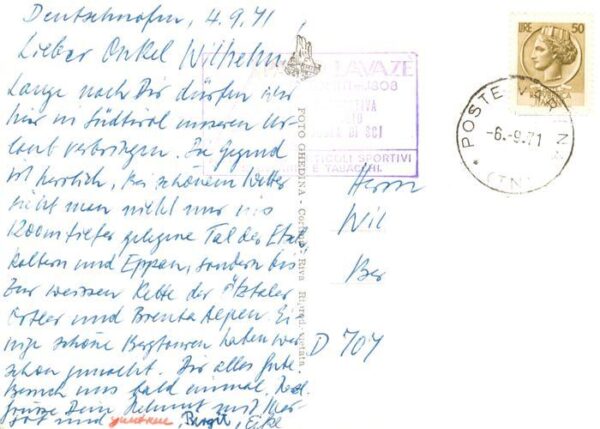 Deutschnofen, 4.9.71
Lieber Onkel Wilhelm,
Lange nach Dir dürfen wir
hier in Südtirol unseren Ur-
laub verbringen. Die Gegend
ist herrlich, bei schönem Wetter
sieht man nicht nur ins
1200m tiefer gelegene Tal der Etsch,
Kaltern und Eppan, sondern bis
zur weissen Kette der Ötztaler
Ortler und Brenta Alpen. Ei-
nige schöne Bergtouren haben wir
schon gemacht. Dir alles Gute
Besuch uns bald einmal. Herzl.
Grüsse Dein Helmut mit
und Birgit, Eike
LAVAZE
DI SCI
ARTICOLI SPORTIVI
E TABACCHI
FOTO GHEDINA - Riprod. vietata.
LIRE 50
POSTE
-6.-9.71
(TN)
Herrn
Wil
Ber
D 704